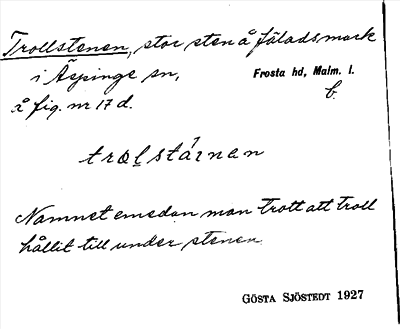 Trollstenen, stor sten å fäladsmark
i Äspinge sn,
Frosta hd, Malm. l.
b.
å fig. nr 17 d.
Namnet emedan man trott att troll
hållit till under stenen.
GÖSTA SJÖSTEDT 1927